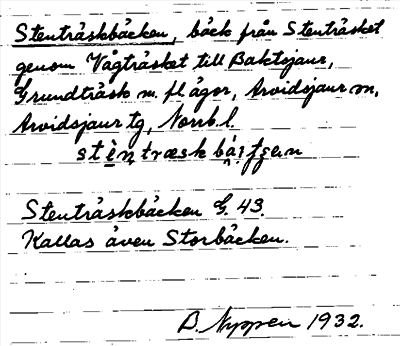 Stenträskbäcken, bäck från Stenträsket
genom Vågträsket till Baktsjaur,
Grundträsk m. fl ägor, Arvidsjaur sn,
Arvidsjaur tg, Norrb. l.
Stenträskbäcken G. 43.
Kallas även Storbäcken.
B. Nyppen 1932.